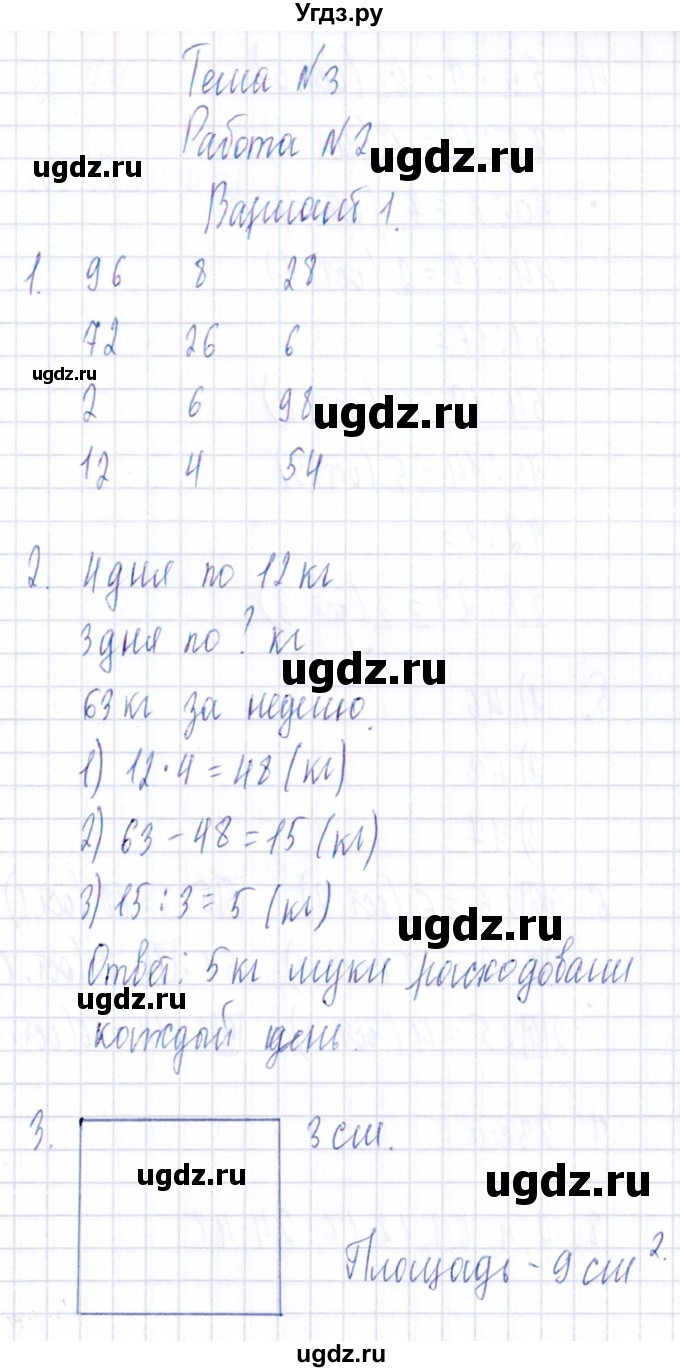 Угдз.ру
Тема №3
Работа №2
ugdz.ru
ugdz.ru
Вариант 1.
1. 96 8 28
72 26 6
ugdz.ru
2 6 98
ugdz.ru
12 4 54
2. 4 дня по 12 кг
3 дня по ? кг
ugdz.ru
63 кг за неделю.
1) 12 · 4 = 48 (кг)
2) 63 – 48 = 15 (кг)
3) 15 : 3 = 5 (кг)
ugdz.ru
Ответ: 5 кг муки расходовали
ugdz.ru
каждый день.
3. 3 см.
ugdz.ru
ugdz.ru
Площадь – 9 см².
ugdz.ru